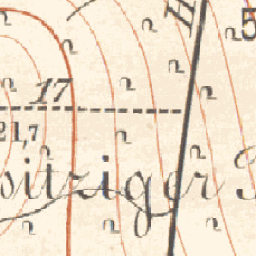 H
5
17
21,7
sitziger